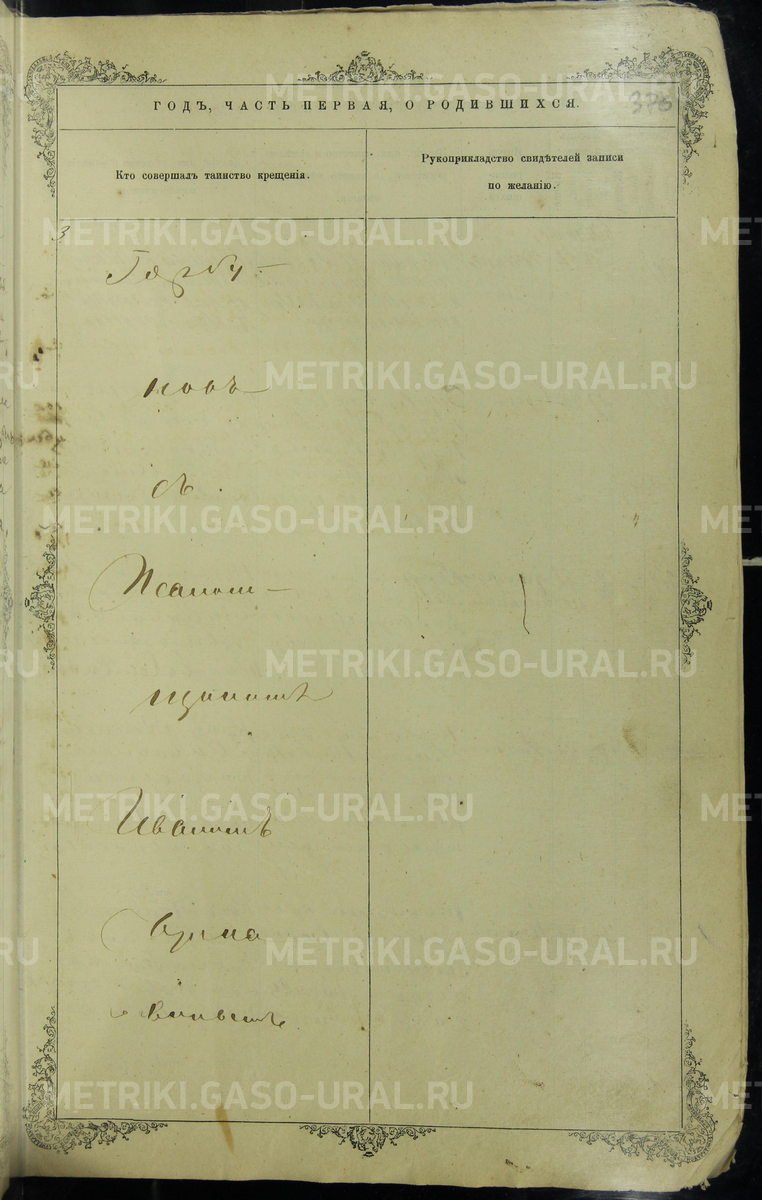 ГОДЪ, ЧАСТЬ ПЕРВАЯ, О РОДИВШИХСЯ.
376
Кто совершалъ таинство крещенія.
Рукоприкладство свидѣтелей записи
по желанію.
3
Горбу-
новъ
съ
Псалом-
щикомъ
Иваномъ
METRIKI.GASO-URAL.RU